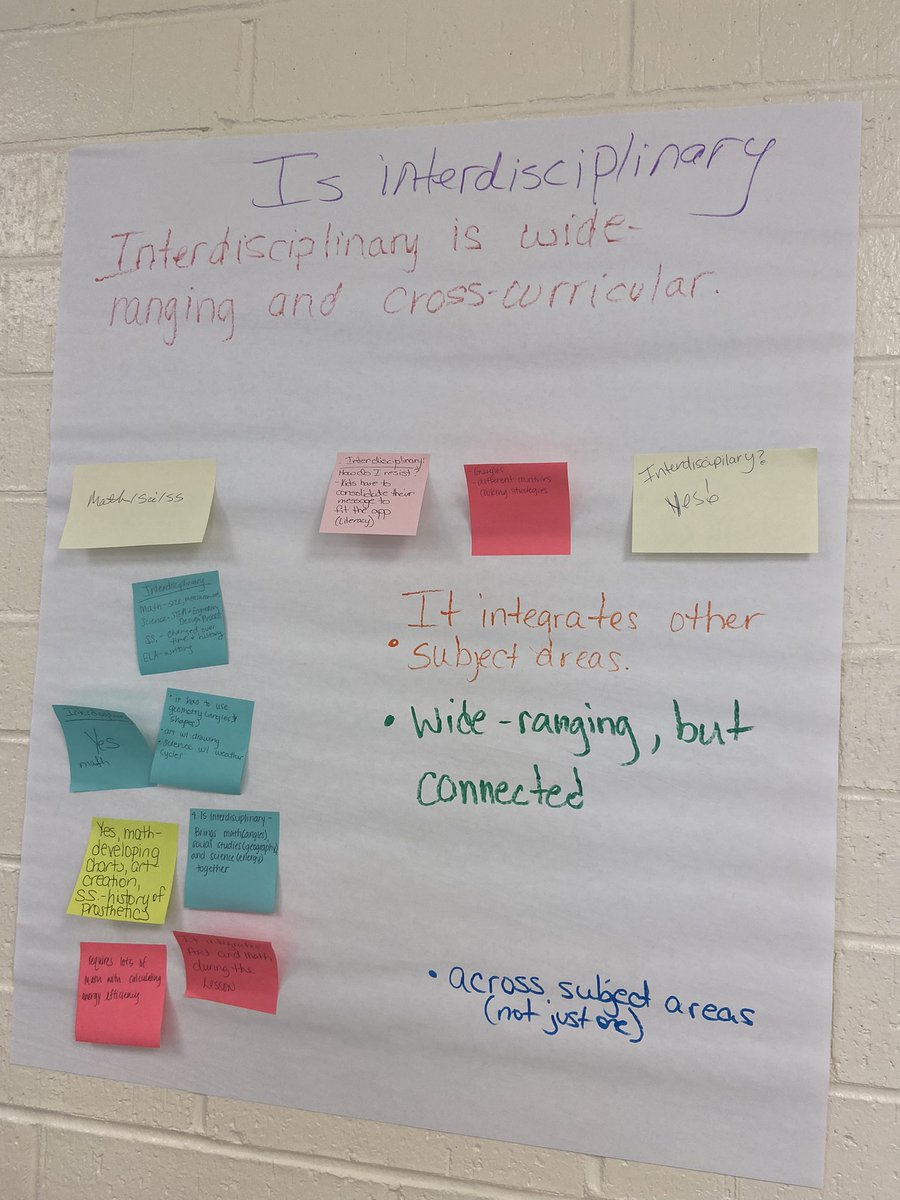 Is interdisciplinary
Interdisciplinary is wide-
ranging and cross-curricular.
Math/Sci/SS
Interdisciplinary:
How do I resist?
-Kids have to
consolidate their
message to
fit the app
(Literacy)
different countries
cooking strategies
Interdiscipilary?
Yes!
Interdisciplinary
Math-size, measurement
Science-STEM + Engineering
Design Process
SS.-changed over
time + history
ELA-writing
It integrates other
• subject areas.
Yes
math
• it has to use
geometry (angles &
shapes)
• art w/ drawing
• science w/ weather
cycles
• wide-ranging, but
connected
Yes, math-
developing
charts, art-
creation,
SS.-history of
Prosthetics
4. Is Interdisciplinary-
Brings math(angles),
social studies(geography)
and science(energy)
together
requires lots of
math with calculating
energy efficiency
It integrates
Art and math
during the
lesson
• across subject areas
(not just one)